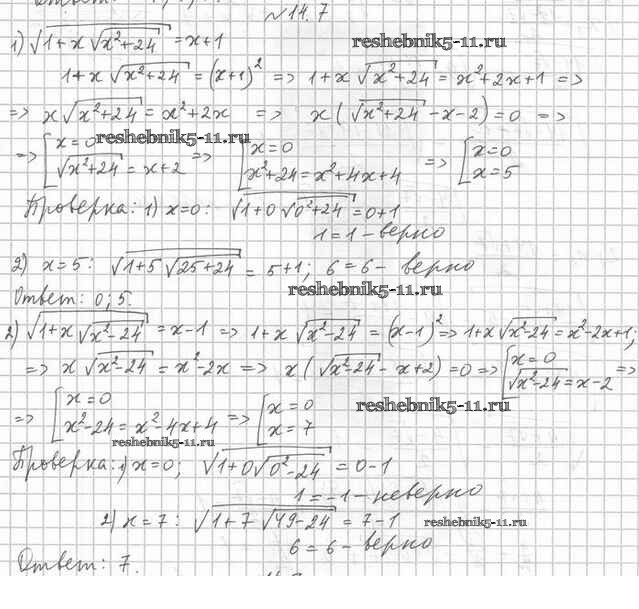 №14.7
1) √(1+x√(x²+24)) = x+1 reshebnik5-11.ru
1+x√(x²+24) = (x+1)² => 1+x√(x²+24) = x²+2x+1 =>
=> x√(x²+24) = x²+2x => x(√(x²+24) -x-2)=0 =>
=> [x=0 √(x²+24) = x+2 => [x=0 x²+24=x²+4x+4 => [x=0 x=5 reshebnik5-11.ru
Проверка: 1) x=0: √(1+0√(0²+24)) = 0+1
1=1 – верно
2) x=5: √(1+5√(25+24)) = 5+1; 6=6 – верно
reshebnik5-11.ru
Ответ: 0; 5.
2) √(1+x√(x²-24)) = x-1 => 1+x√(x²-24) = (x-1)² => 1+x√(x²-24) = x²-2x+1;
=> x√(x²-24) = x²-2x => x(√(x²-24) - x+2)=0 => [x=0 √(x²-24) = x-2 =>
=> [x=0 x²-24=x²-4x+4 => [x=0 x=7 reshebnik5-11.ru
reshebnik5-11.ru
Проверка: 1) x=0; √(1+0√(0²-24)) = 0-1
1=-1 – неверно
2) x=7: √(1+7√(49-24)) = 7-1 reshebnik5-11.ru
6=6 – верно
Ответ: 7.